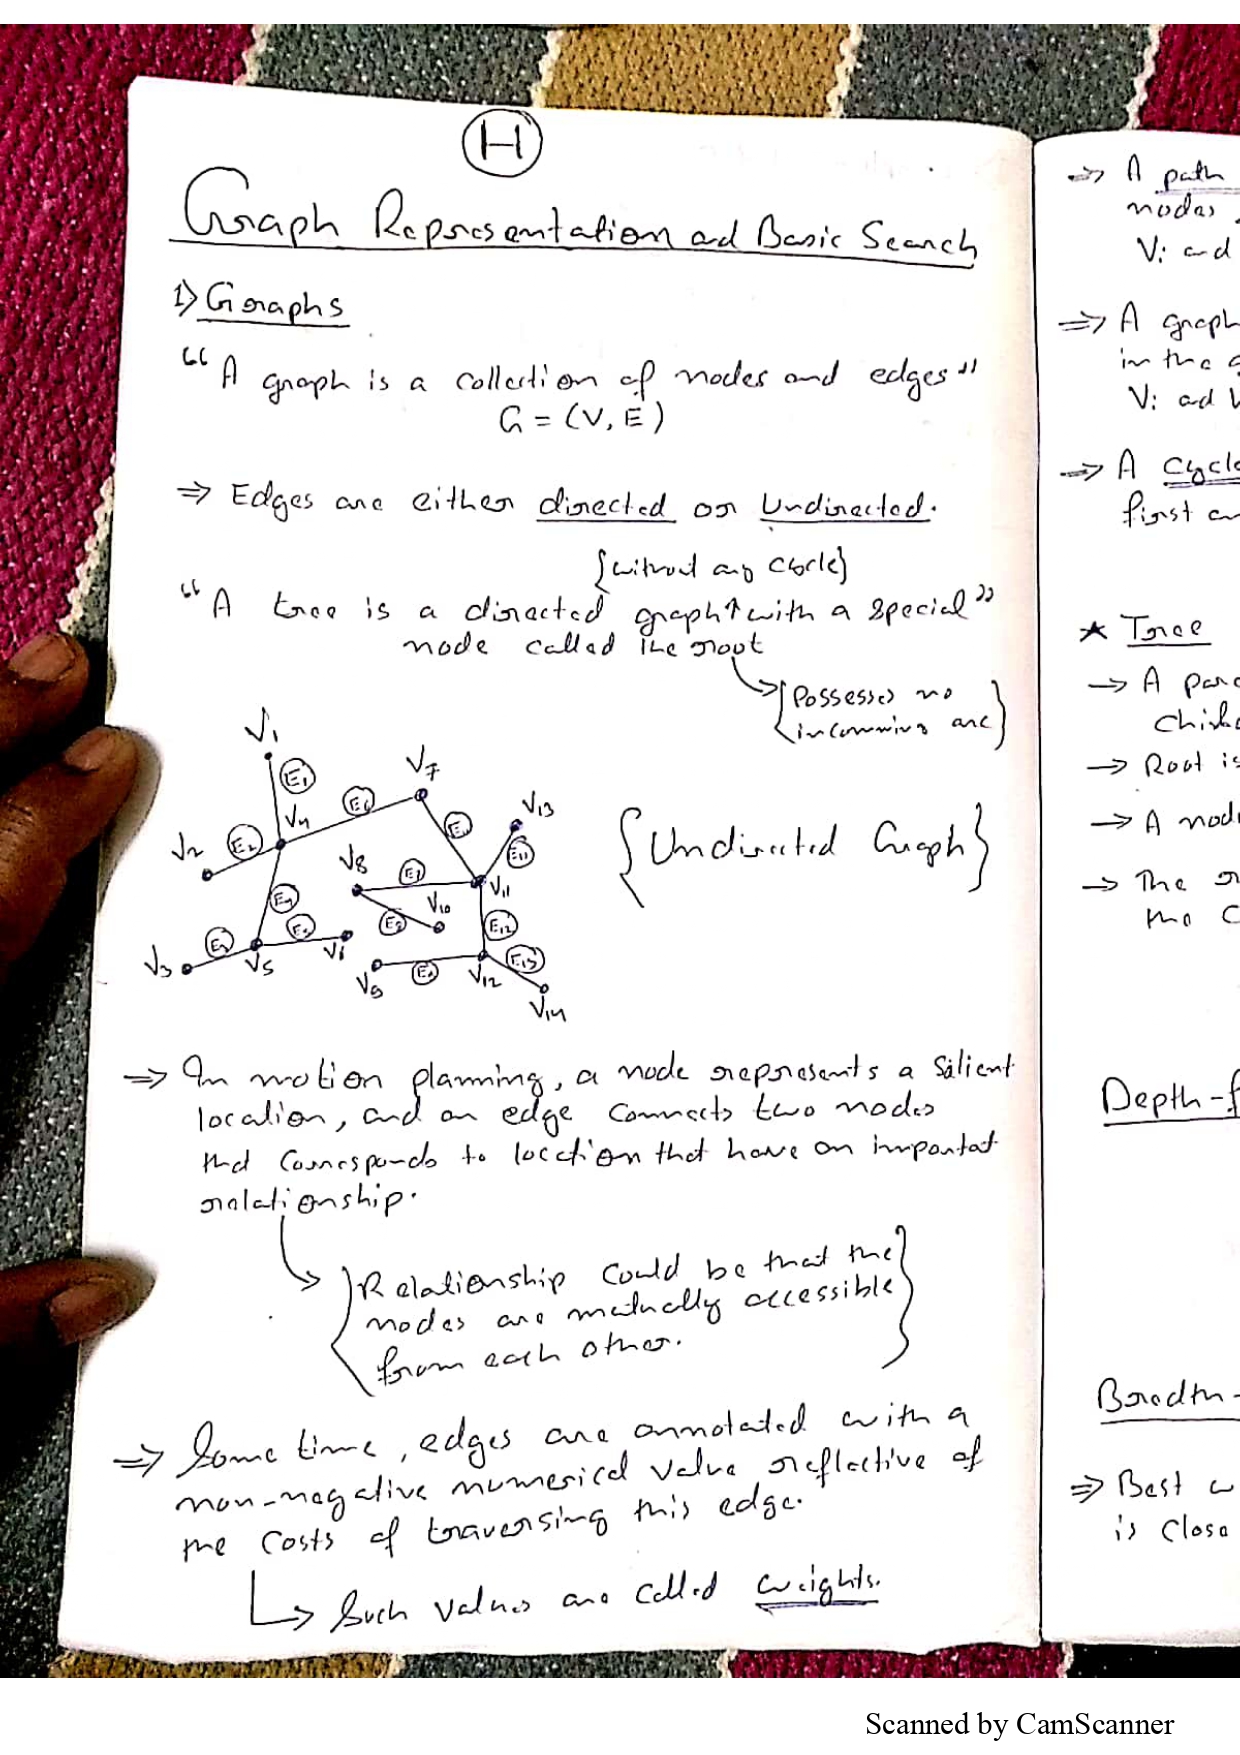 H
Graph Representation and Basic Search
1) Graphs
"A graph is a collection of nodes and edges"
G = (V, E)
⇒ Edges are either directed or Undirected.
{without any cycle}
"A tree is a directed graph↑ with a special"
node called the root
{Possesses no
incomming arc}
V1
E1
V7
E6
V4
V13
V2
E2
V8
E7
E11
V11
{Undirected Graph}
E4
V10
E8
E12
E3
V3
V5
V9
V12
E13
V14
⇒ In motion planning, a node represents a Salient
location, and an edge connects two nodes
that corresponds to location that have an important
relationship.
{Relationship could be that the
nodes are mutually accessible
from each other.}
⇒ Some time, edges are annotated with a
non-negative numerical value reflective of
the costs of traversing this edge.
↳ Such values are called weights.
⇒ A path
nodes
Vi and
⇒ A graph
in the
Vi and
⇒ A Cycle
first
★ Tree
→ A
→ Root is
→ A
→ The
the
Depth-f
Bredth-
⇒ Best
is close
Scanned by CamScanner